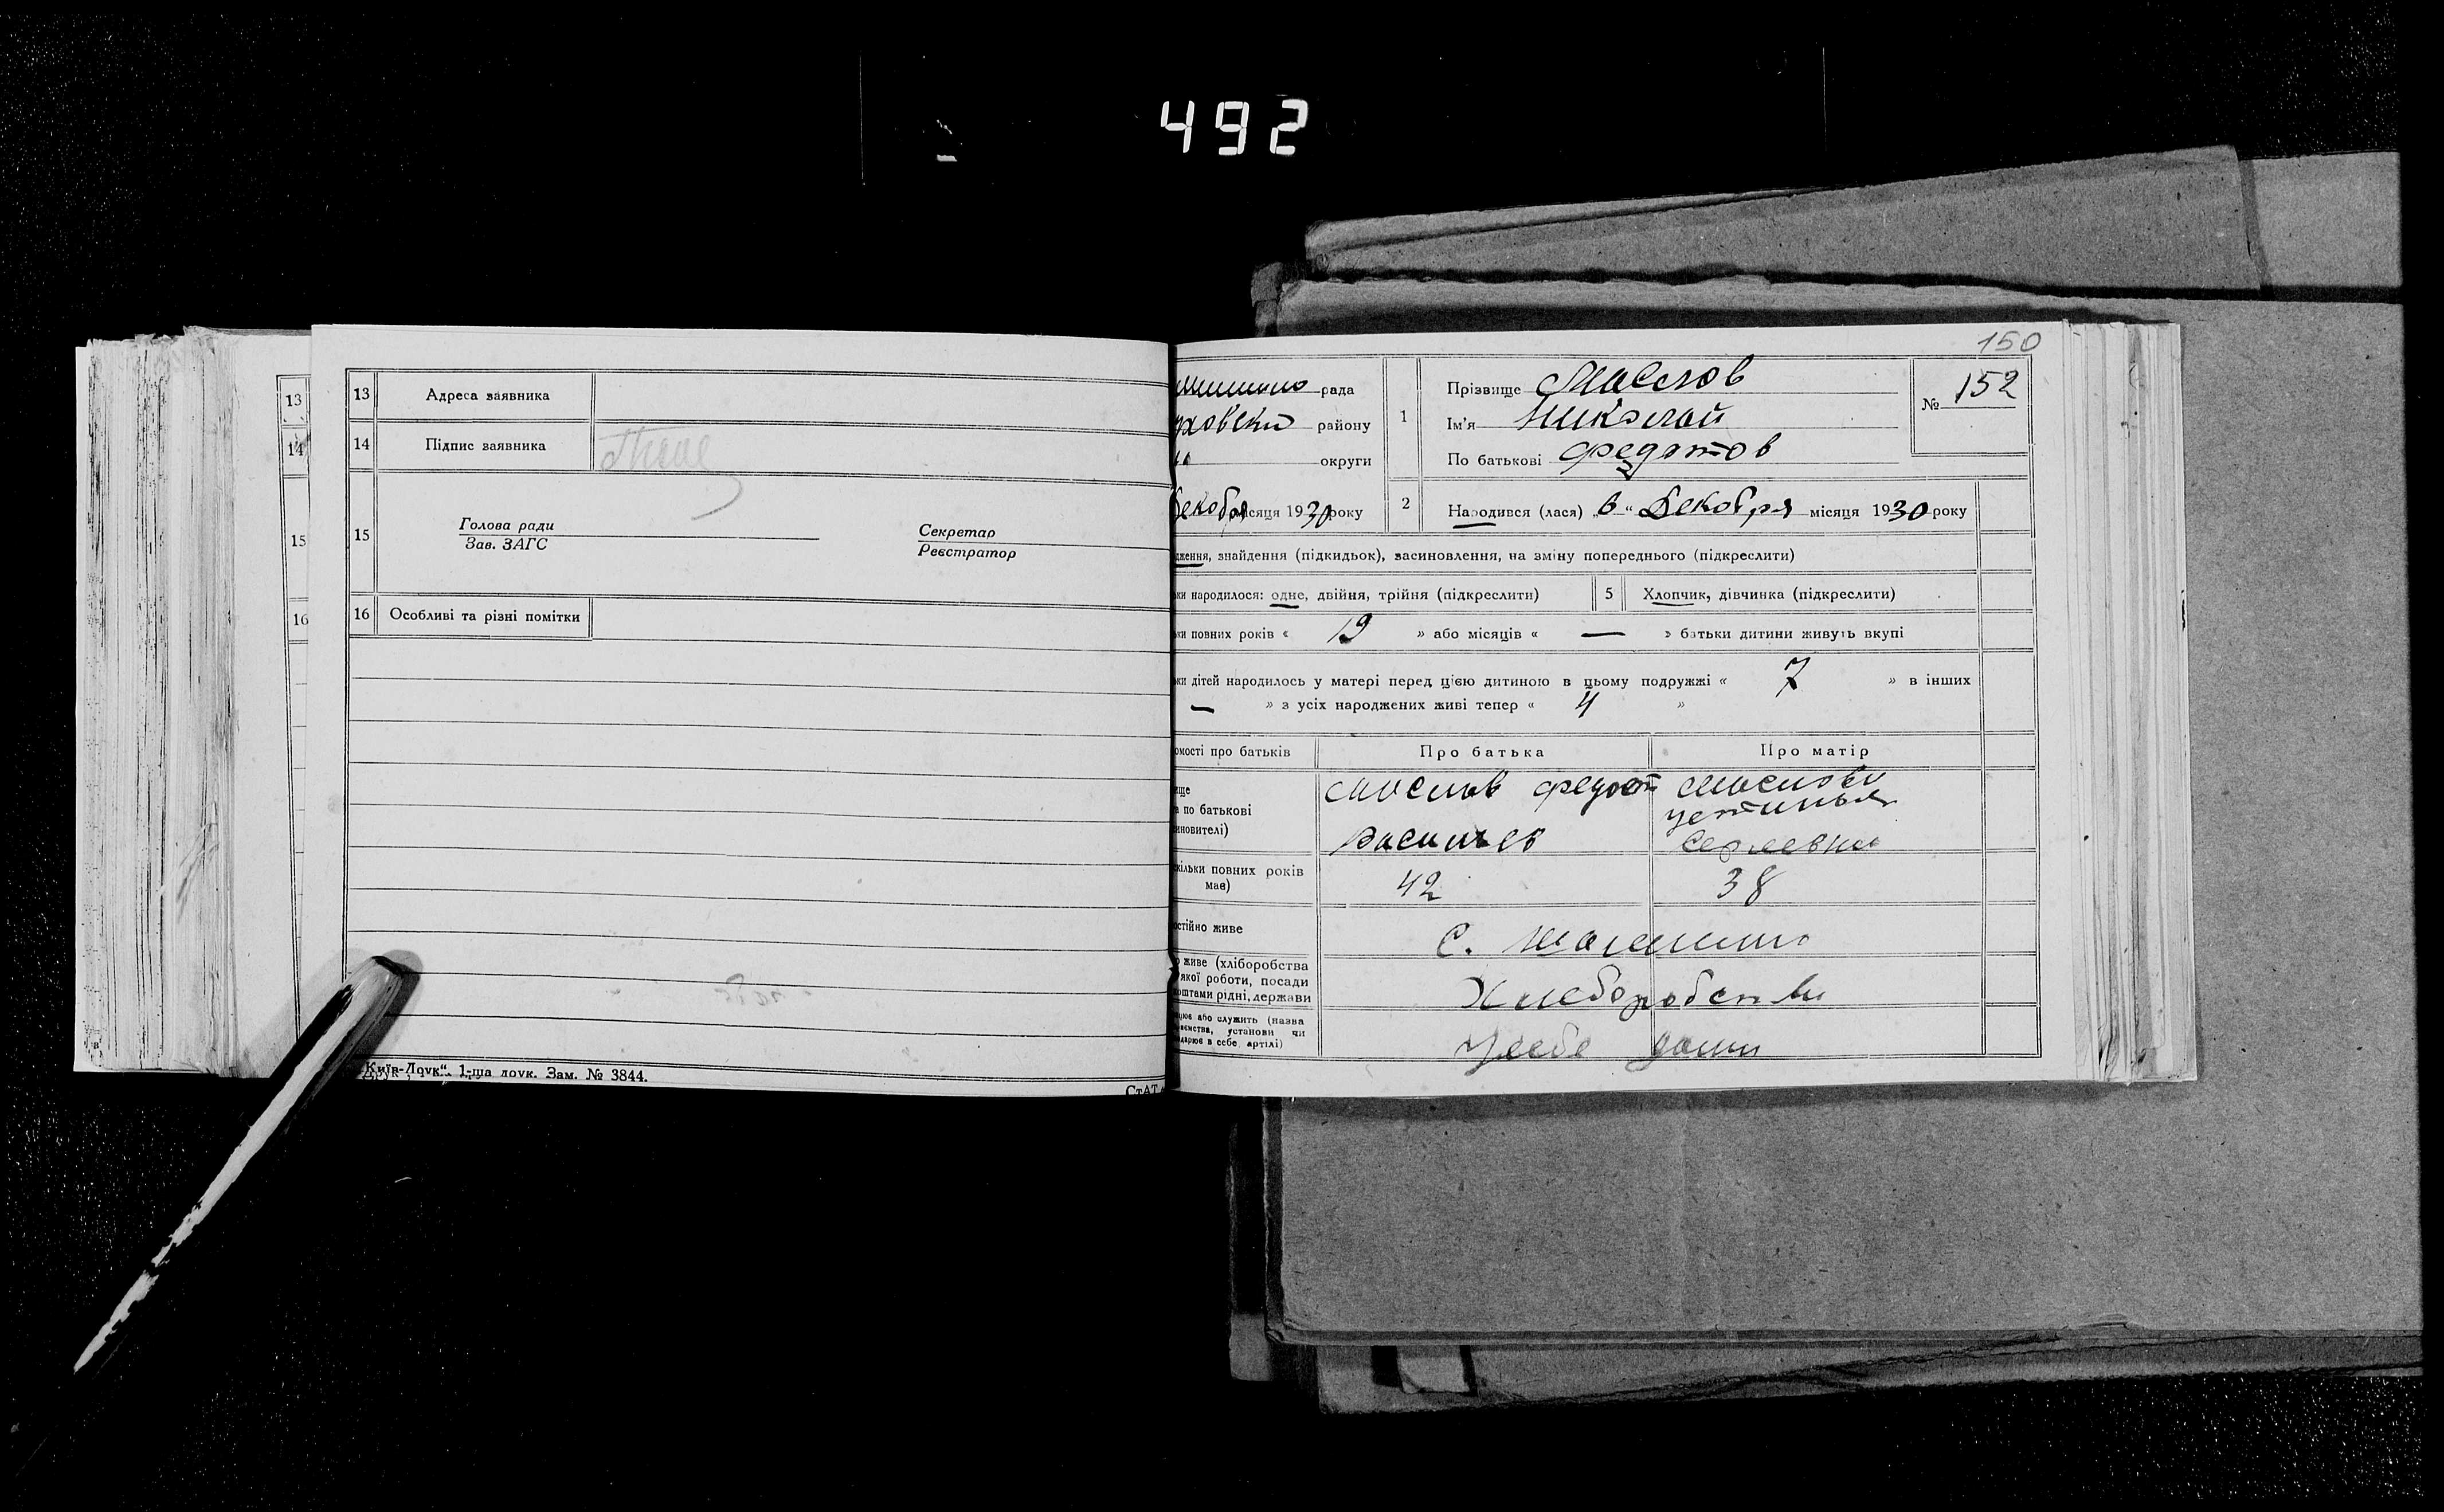 492
150
13
14
15
16
13 Адреса заявника
14 Підпис заявника
15 Голова ради
Зав. ЗАГС
Секретар
Реєстратор
16 Особливі та різні помітки
„Київ-Друк“. 1-ша друк. Зам. № 3844.
рада
району
округи
1
Прізвище Маслов
Ім'я Николай
По батькові Федотов
№ 152
Декобря місяця 1930 року
2 Народився (лася) „6“ Декобря місяця 1930 року
дження, знайдення (підкидьок), васиновлення, на зміну попереднього (підкреслити)
ки народилося: одне, двійня, трійня (підкреслити)
5 Хлопчик, дівчинка (підкреслити)
ки повних років « 19 » або місяців « — » батьки дитини живуть вкупі
ки дітей народилось у матері перед цією дитиною в цьому подружжі « 7 » в інших
— » з усіх народжених живі тепер « 4 »
омості про батьків
Про батька
Про матір
ище
а по батькові
иновителі)
Маслов Федот
Васильев
Маслова
Устинья
Сергеевна
кільки повних років
має)
42
38
остійно живе
С.
о живе (хліборобства
якої роботи, посади
оштами рідні, держави
Хлеборобства
цює або служить (назва
ємства, установи чи
дарює в себе, артілі)